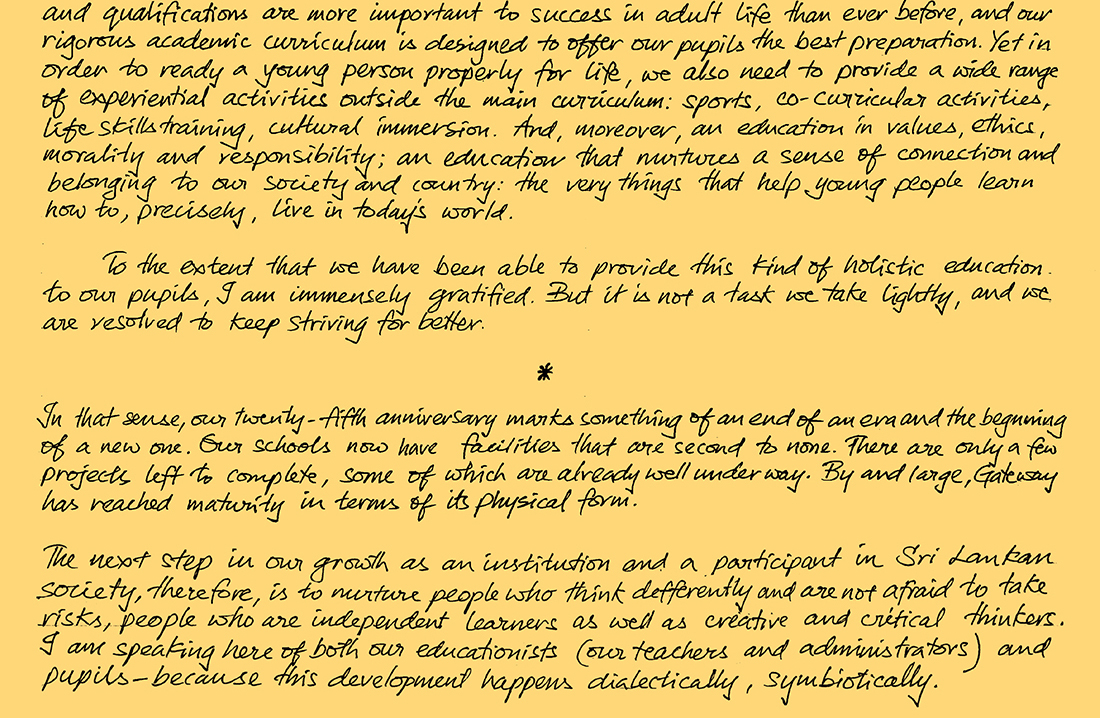 and qualifications are more important to success in adult life than ever before, and our
rigorous academic curriculum is designed to offer our pupils the best preparation. Yet in
order to ready a young person properly for life, we also need to provide a wide range
of experiential activities outside the main curriculum: sports, co-curricular activities,
life skills training, cultural immersion. And, moreover, an education in values, ethics,
morality and responsibility; an education that nurtures a sense of connection and
belonging to our society and country: the very things that help young people learn
how to, precisely, live in today's world.
To the extent that we have been able to provide this kind of holistic education.
to our pupils, I am immensely gratified. But it is not a task we take lightly, and we
are resolved to keep striving for better.
*
In that sense, our twenty-fifth anniversary marks something of an end of an era and the beginning
of a new one. Our schools now have facilities that are second to none. There are only a few
projects left to complete, some of which are already well under way. By and large, Gateway
has reached maturity in terms of its physical form.
The next step in our growth as an institution and a participant in Sri Lankan
society, therefore, is to nurture people who think defferently and are not afraid to take
risks, people who are independent learners as well as creative and critical thinkers.
I am speaking here of both our educationists (our teachers and administrators) and
pupils—because this development happens dialectically, symbiotically.